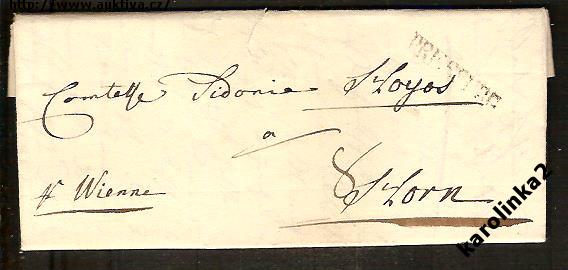 http://www.auktiva.cz/
Comtesse Sidonie Hoyos
a
Horn
pr Wienne
karolinka2